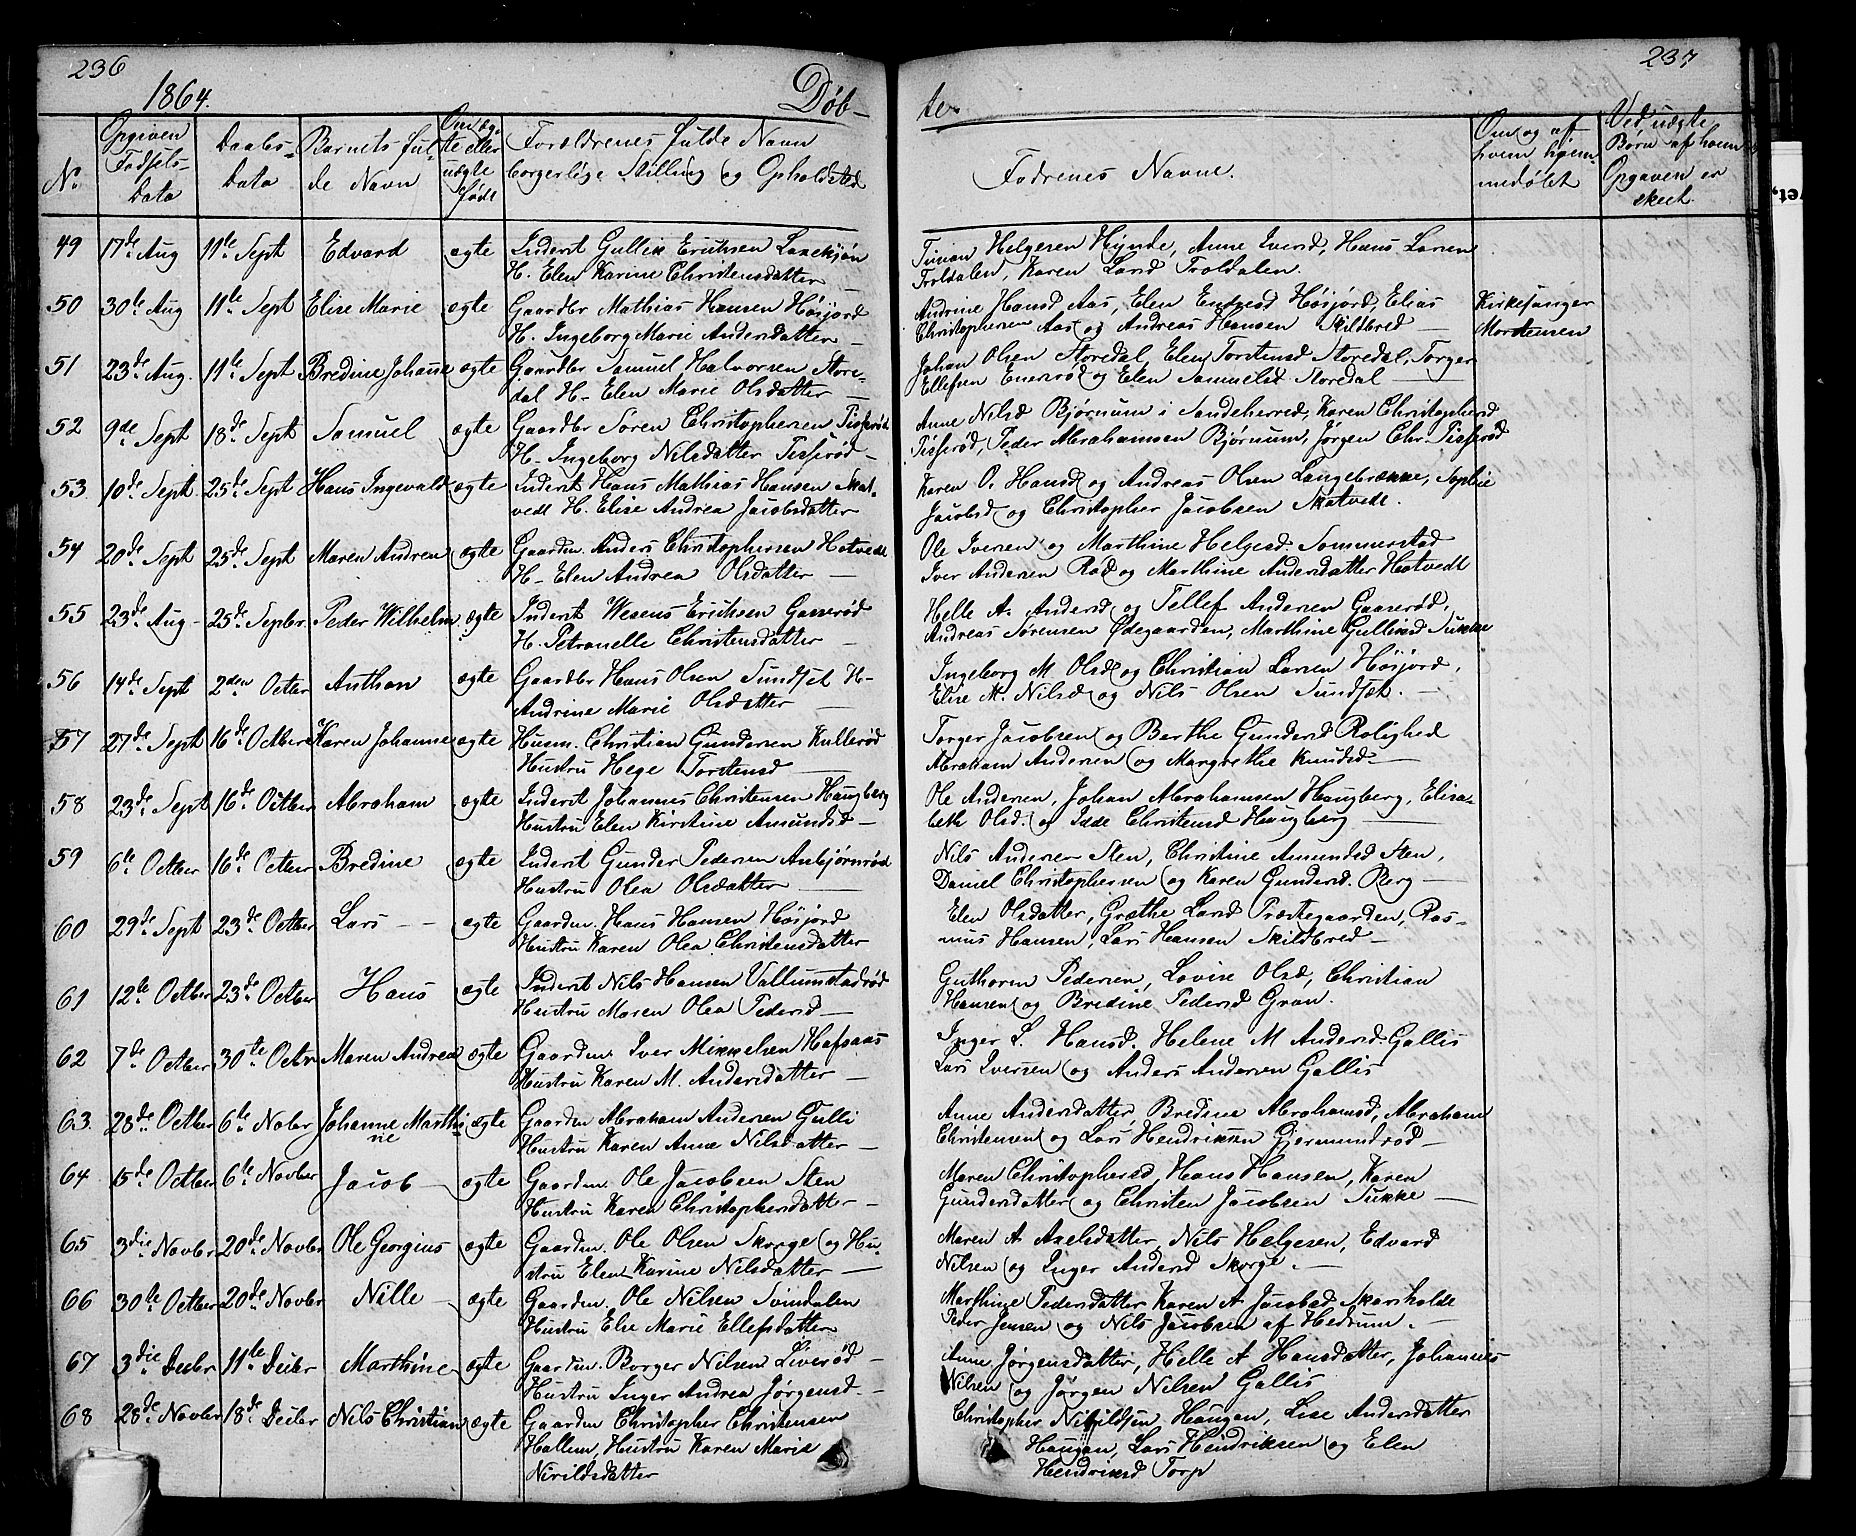 236
1864.
Døb-
No
Opgiven Fødsels-Data
Daabs-Data
Barnets fulde Navn
Om ægte eller uægte født
Forældrenes fulde Navn borgerlige Stilling og Opholdsted
49 17de Aug 11te Sept Edvard ægte Inderst Gullik Erichsen
H. Elen Karine Christensdatter —
50 30te Aug 11te Sept Elise Marie ægte Gaardbr Mathias Hansen Høijord
H. Ingeborg Marie Andersdatter —
51 23de Aug. 11te Sept Bredine Johanne ægte Gaardbr Samuel Halvorsen Store-
dal H- Elen Marie Olsdatter —
52 9de Sept 18de Sept Samuel ægte Gaardbr Søren Christophersen
H- Ingeborg Nilsdatter —
53. 10de Sept. 25de Sept Hans Ingevald ægte Inderst Hans Mathias Hansen Skat-
vedt H. Elise Andrea Jacobsdatter
54 20de Sept 25de Sept Maren Andrea ægte Gaardm. Anders Christophersen Hotvedt
H- Elen Andrea Olsdatter —
55 23de Aug- 25de Sepbr. Peder Wilhelm ægte Inderst Erichsen Gaaserød
H. Petronelle Christensdatter —
56 14de Sept 2den Octbr Anthon ægte Gaardbr Hans Olsen Sundset H-
Andrine Marie Olsdatter —
57 27de Sept 16de Octber Karen Johanne ægte Husm. Christian Gundersen Kullerød
Hustru Hege Torstensd —
58 23de Sept 16de Octber Abraham ægte Inderst Johannes Christensen Haugberg
Hustru Elen Kirstine Amundsd —
59 6te Octber 16de Octber Bredine ægte Inderst Gunder Pedersen Anbjørnrød
Hustru Olea Olsdatter —
60 29de Sept 23de Octber Lars — ægte Gaardm. Hans Hansen Høijord
Hustru Karen Olea Christensdatter
61 12te Octber 23de Octber Hans ægte Inderst Nils Hansen
Hustru Maren Olea Pedersd —
62 7de Octber 30te Octbr Maren Andrea ægte Gaardm. Iver Mikkelsen Hafsaas
Hustru Karen M. Andersdatter —
63. 28de Octber 6te Nobr Johanne Marthi- ægte Gaardm Abraham Andersen Gulli
ne Hustru Karen Anne Nilsdatter —
64 15de Octber 6te Novber Jacob — ægte Gaardm. Ole Jacobsen Sten
Hustru Karen Christophersdatter —
65 3die Novbr 20de Novbr Ole Georgius ægte Gaardm. Ole Olsen Skorge og Hu-
stru Elen Karine Nilsdatter —
66 30te Octber 20de Novbr Nille ægte Gaardm. Ole Nilsen Svindalen
Hustru Else Marie Ellefsdatter
67 3die Decbr 11te Decbr Marthine ægte Gaardm. Borger Nilsen Liverød —
Hustru Inger Andrea Jørgensd.—
68 28de Novbr 18de Decbr Nils Christian ægte Gaardm Christopher Christensen
Hallem, Hustru Karen Marie
Nirildsdatter
237
te
Fadrenes Navne.
Om og af hvem hjemmedøbt
Ved uægte Børn af hvem Opgaven er skeet.
Helgesen Hynde, Anne Iversd, Hans Larsen
Troldalen, Karen Larsd Troldalen.
Andrine Hansd Aas, Elen Høijord, Elias Kirkesanger
Christophersen Aas og Andreas Hansen Skildbred — Mortensen
Johan Olsen Storedal, Elen Torstensd Storedal, Torger
Ellefsen og Elen Samuelsd Storedal —
Anne Nilsd Bjørnum i Sandeherred, Karen Christophersd
Peder Abrahamsen Bjørnum, Jørgen Chr.
Karen O. Hansd og Andreas Olsen Langebrække, Sophie
Jacobsd og Christopher Jacobsen Skatvedt.
Ole Iversen og Marthine Helgesd. Sommerstad
Iver Andersen Rød og Marthine Andersdatter Hotvedt
Helle A. Andersd og Tellef Andersen Gaaserød,
Andreas Sørensen Ødegaarden, Marthine Gulliksd Sukke
Ingeborg M. Olsd og Christian Larsen Høijord,
Elise M. Nilsd og Nils Olsen Sundset. —
Torger Jacobsen og Berthe Gundersd Rolighed
Abraham Andersen og Margrethe Knudsd —
Ole Andersen, Johan Abrahamsen Haugberg, Elisa-
beth Olsd. og Christensd Haugberg —
Nils Andersen Sten, Christine Amundsd Sten,
Daniel Christophersen og Karen Gundersd. Berg —
Elen Olsdatter, Grethe Larsd Præstegaarden, Ras-
mus Hansen, Lars Hansen Skildbred —
Guthorm Pedersen, Lovise Olsd, Christian
Hansen og Bredine Pedersd Gran.
Inger L. Hansd. Helene M Andersd. Gallis
Lars Iversen og Anders Andersen Gallis
Anne Andersdatter, Bredine Abrahamsd, Abraham
Christensen og Lars Hendriksen Gjermundrød —
Maren Christophersd, Hans Hansen, Karen
Gundersdatter og Christen Jacobsen Sukke —
Maren A Axelsdatter, Nils Helgesen, Edvard
Nilsen og Inger Andersd Skorge. —
Marthine Pedersdatter Karen A Jacobsd Skarsholdt
Peder Jensen og Nils Jacobsen af Hedrum. —
Anne Jørgensdatter, Helle A Hansdatter, Johannes
Nilsen og Jørgen Nilsen Gallis
Christopher Nirildsen Haugan, Lise Andersdatter
Haugan, Lars Hendriksen og Elen
Hendriksd Torp